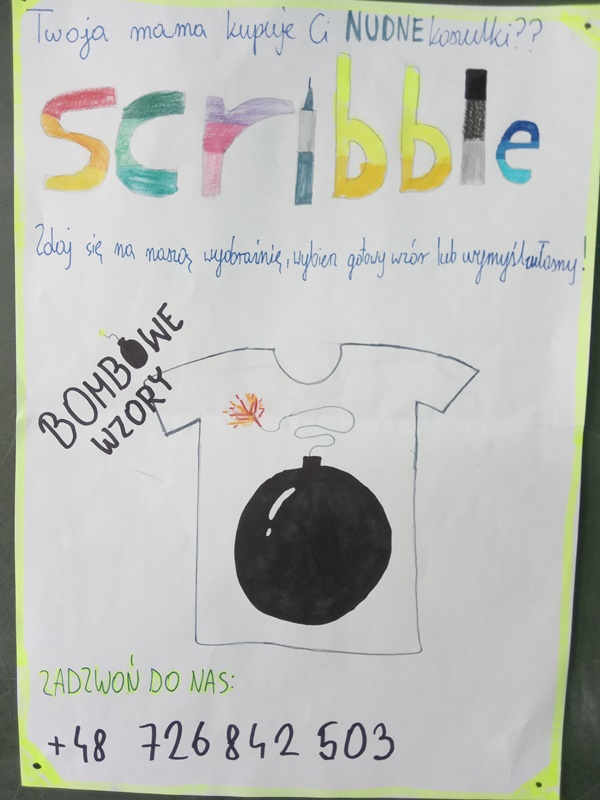 Twoja mama kupuje Ci NUDNE koszulki??
scribble
Zdaj się na naszą wyobraźnię, wybierz gotowy wzór lub wymyśl własny!
BOMBOWE
WZORY
ZADZWOŃ DO NAS:
+48 726 842 503